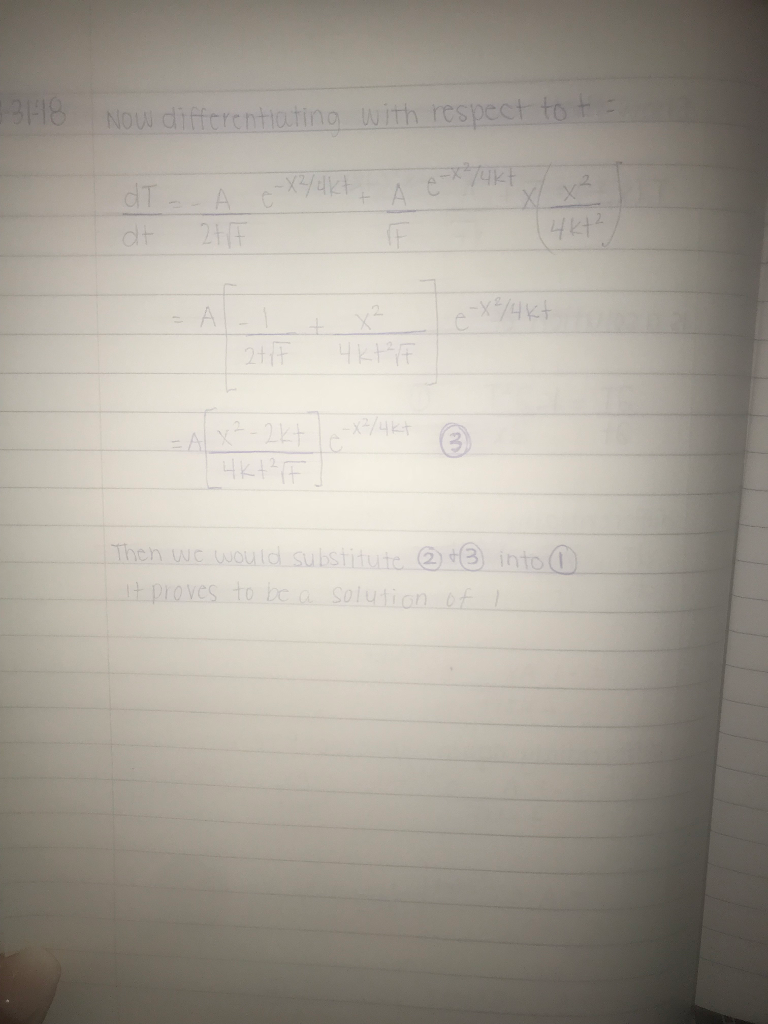 Now differentiating with respect to t =
dT/dt = - A/2t√t e^-x²/4kt + A/√t e^-x²/4kt x (x²/4kt²)
= A [ -1/2t√t + x²/4kt²√t ] e^-x²/4kt
= A [ x² - 2kt / 4kt²√t ] e^-x²/4kt ③
Then we would substitute ② + ③ into ①
it proves to be a solution of 1